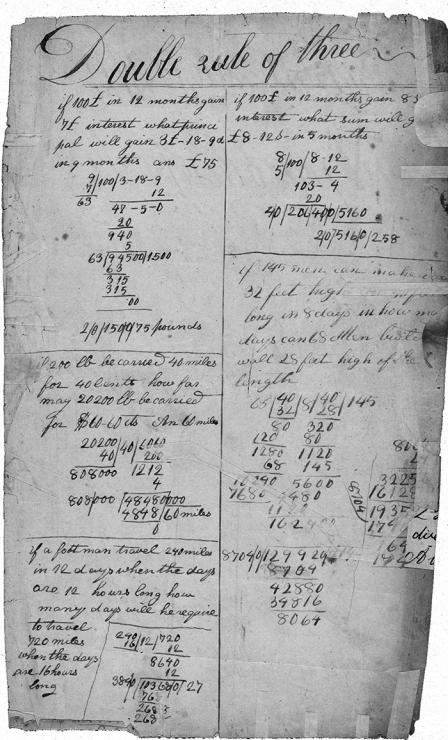 Double rule of three
if 100£ in 12 months gain
7£ interest what princi
pal will gain 3£-18-9d
in 9 months ans £75
9/100/3-18-9
7 12
63 47-5-0
20
940
5
63/94500/1500
63
315
315
00
2/0/150/0/75 pounds
if 200 lb be carried 40 miles
for 40 cents how far
may 20200 lb be carried
for $60-60 cts An 60 miles
20200/40/6060
40 200
808000 1212
4
808000/48480000
4848/60 miles
0
if a foot man travel 240 miles
in 12 days when the days
are 12 hours long how
many days will he require
to travel
720 miles
when the days
are 16 hours
long
240/12/720
16 12
8640
12
3840/103680/27
768
268
268
if 100£ in 12 months gain 8
interest what sum will g
£8-12s- in 5 months
8/100/8-12
5 12
103-4
20
4/0/206/40/0/5160
2/0/516/0/258
if 145 men can make a
32 feet high
long in 8 days in how ma
days can 68 Men build
wall 28 feet high of the
length
68/40/8/40/145
32 28
80 320
120 80
1280 1120
68 145
10240 5600
7680 4480
1120
162400
87040/129920
8704
42880
34816
8064
3225
16128
1935